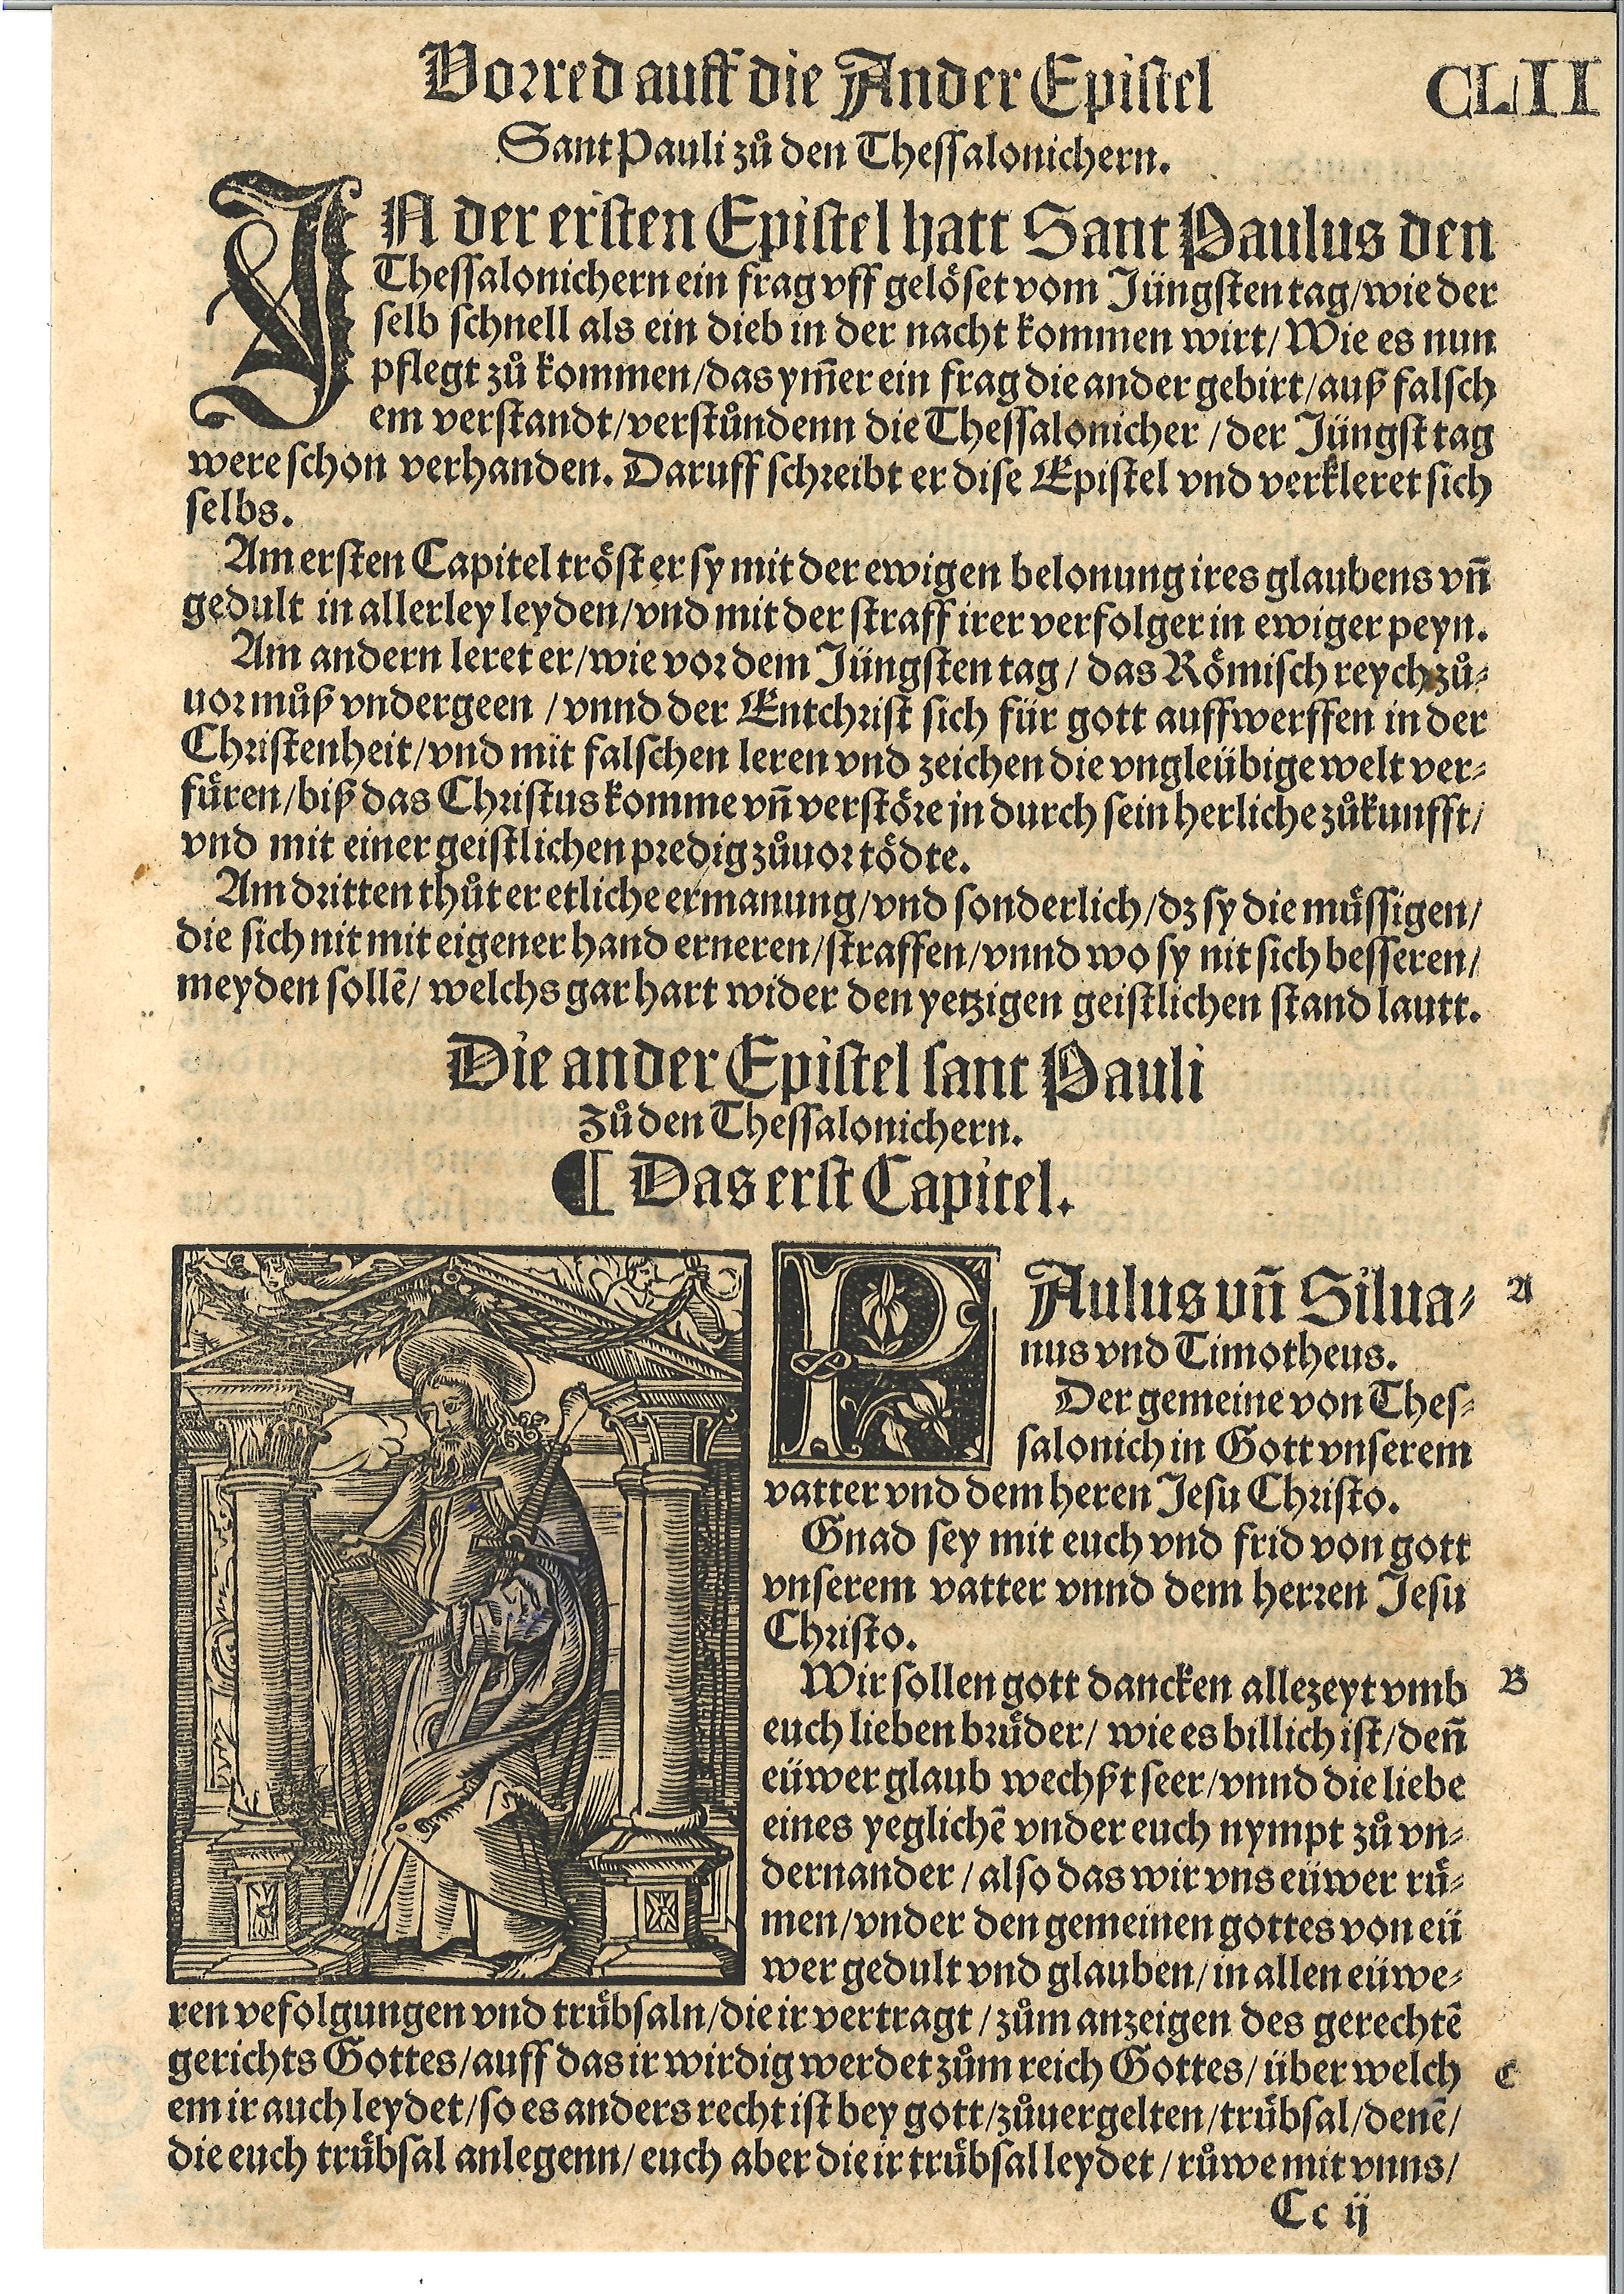 Vorred auff die Ander Epistel
CLII
Sant Pauli zů den Thessalonichern.
IN der ersten Epistel hatt Sant Paulus den
Thessalonichern ein frag vff gelöset vom Jüngsten tag/wie der
selb schnell als ein dieb in der nacht kommen wirt/Wie es nun
pflegt zů kommen/das ym̃er ein frag die ander gebirt/auß falsch
em verstandt/verstůndenn die Thessalonicher/der Jüngst tag
were schon verhanden. Daruff schreibt er dise Epistel vnd verkleret sich
selbs.
Am ersten Capitel tröst er sy mit der ewigen belonung ires glaubens vñ
gedult in allerley leyden/vnd mit der straff irer verfolger in ewiger peyn.
Am andern leret er/wie vor dem Jüngsten tag/das Römisch reych zů⸗
uor můß vndergeen/vnnd der Entchrist sich für gott auffwerffen in der
Christenheit/vnd mit falschen leren vnd zeichen die vngleübige welt ver⸗
füren/biß das Christus komme vñ verstöre jn durch sein herliche zůkunfft/
vnd mit einer geistlichen predig zůuor tödte.
Am dritten thůt er etliche ermanung/vnd sonderlich/dz sy die müssigen/
die sich nit mit eigener hand erneren/straffen/vnnd wo sy nit sich besseren/
meyden sollẽ/welchs gar hart wider den yetzigen geistlichen stand lautt.
Die ander Epistel sant Pauli
zů den Thessalonichern.
¶ Das erst Capitel.
PAulus vñ Silua⸗ A
nus vnd Timotheus.
Der gemeine von Thes⸗
salonich in Gott vnserem
vatter vnd dem heren Jesu Christo.
Gnad sey mit euch vnd frid von gott
vnserem vatter vnnd dem herren Jesu
Christo.
Wir sollen gott dancken allezeyt vmb B
euch lieben brüder/wie es billich ist/deñ
eüwer glaub wechßt seer/vnnd die liebe
eines yeglichẽ vnder euch nympt zů vn⸗
dernander/also das wir vns eüwer rü⸗
men/vnder den gemeinen gottes von eü
wer gedult vnd glauben/in allen eüwe⸗
ren vefolgungen vnd trübsaln/die ir vertragt/zům anzeigen des gerechtẽ
gerichts Gottes/auff das ir wirdig werdet zům reich Gottes/über welch C
em ir auch leydet/so es anders recht ist bey gott/zůuergelten/trübsal/denẽ/
die euch trübsal anlegenn/euch aber die ir trübsal leydet/růwe mit vnns/
Cc ij